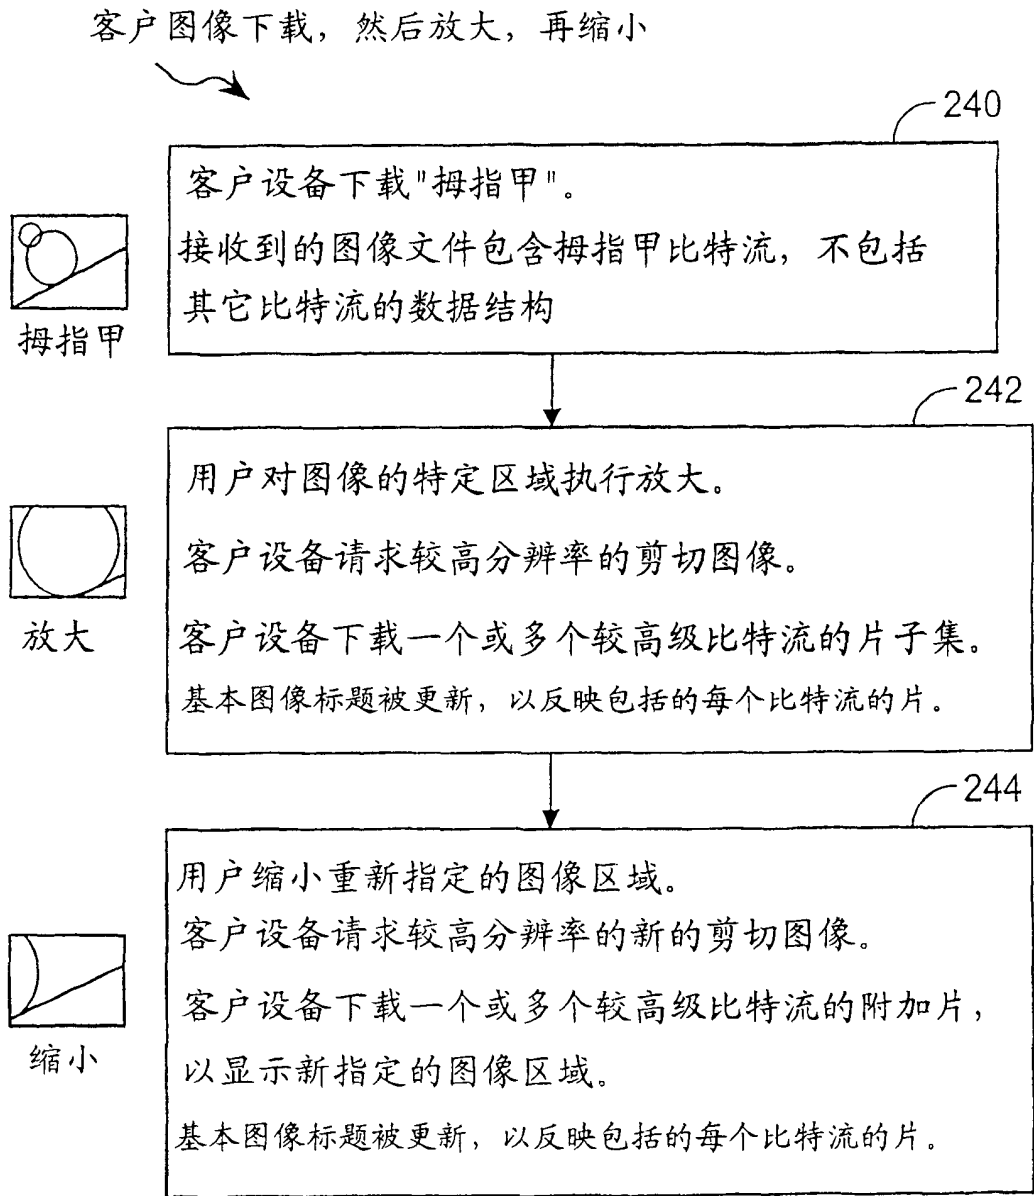 客户图像下载，然后放大，再缩小
240
客户设备下载"拇指甲"。
接收到的图像文件包含拇指甲比特流，不包括
其它比特流的数据结构
拇指甲
242
用户对图像的特定区域执行放大。
客户设备请求较高分辨率的剪切图像。
客户设备下载一个或多个较高级比特流的片子集。
基本图像标题被更新，以反映包括的每个比特流的片。
放大
244
用户缩小重新指定的图像区域。
客户设备请求较高分辨率的新的剪切图像。
客户设备下载一个或多个较高级比特流的附加片，
以显示新指定的图像区域。
基本图像标题被更新，以反映包括的每个比特流的片。
缩小